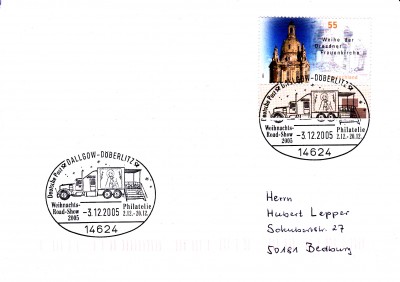 55
Weihe der
Dresdner
Frauenkirche
Deutsche Post DALLGOW-DÖBERLITZ
Weihnachts-
Road-Show
2005
-3.12.2005
Philatelie
2.12.-20.12.
14624
Deutsche Post DALLGOW-DÖBERLITZ
Weihnachts-
Road-Show
2005
-3.12.2005
Philatelie
2.12.-20.12.
14624
Herrn
Hubert Lepper
Schubertstr. 27
50181 Bedburg